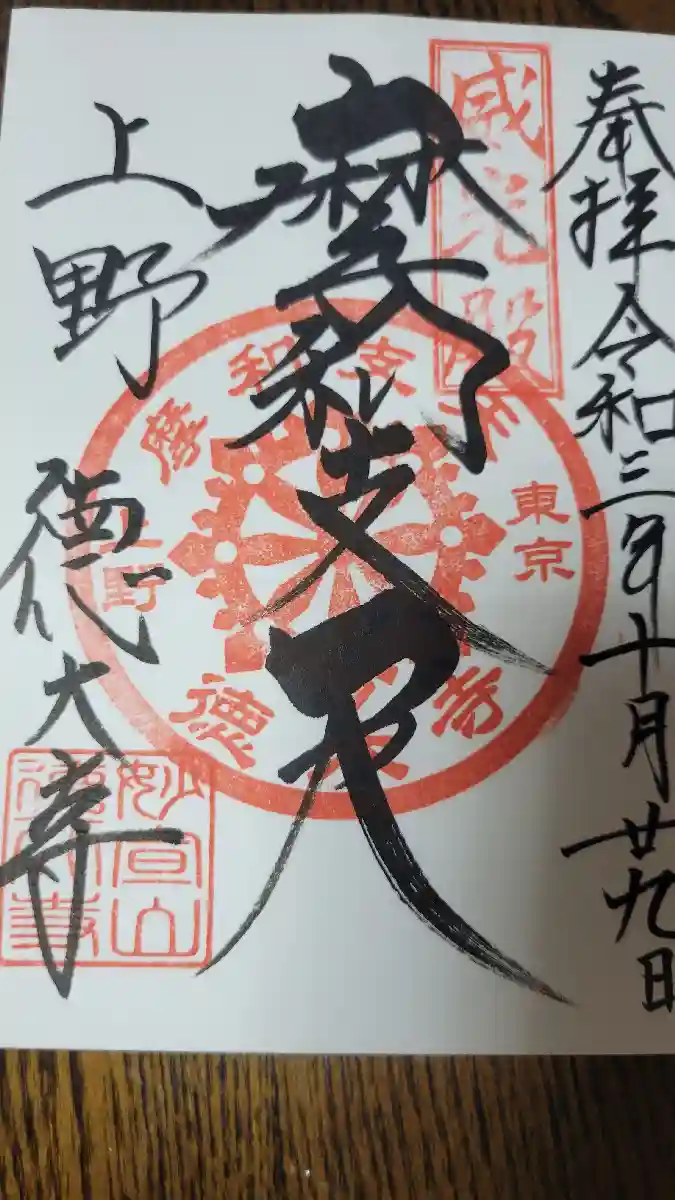 奉拝 令和三年十月廿九日
威光殿
摩利支天
東京
上野
摩利支天
徳大寺
上野 徳大寺
妙宣山
徳大寺